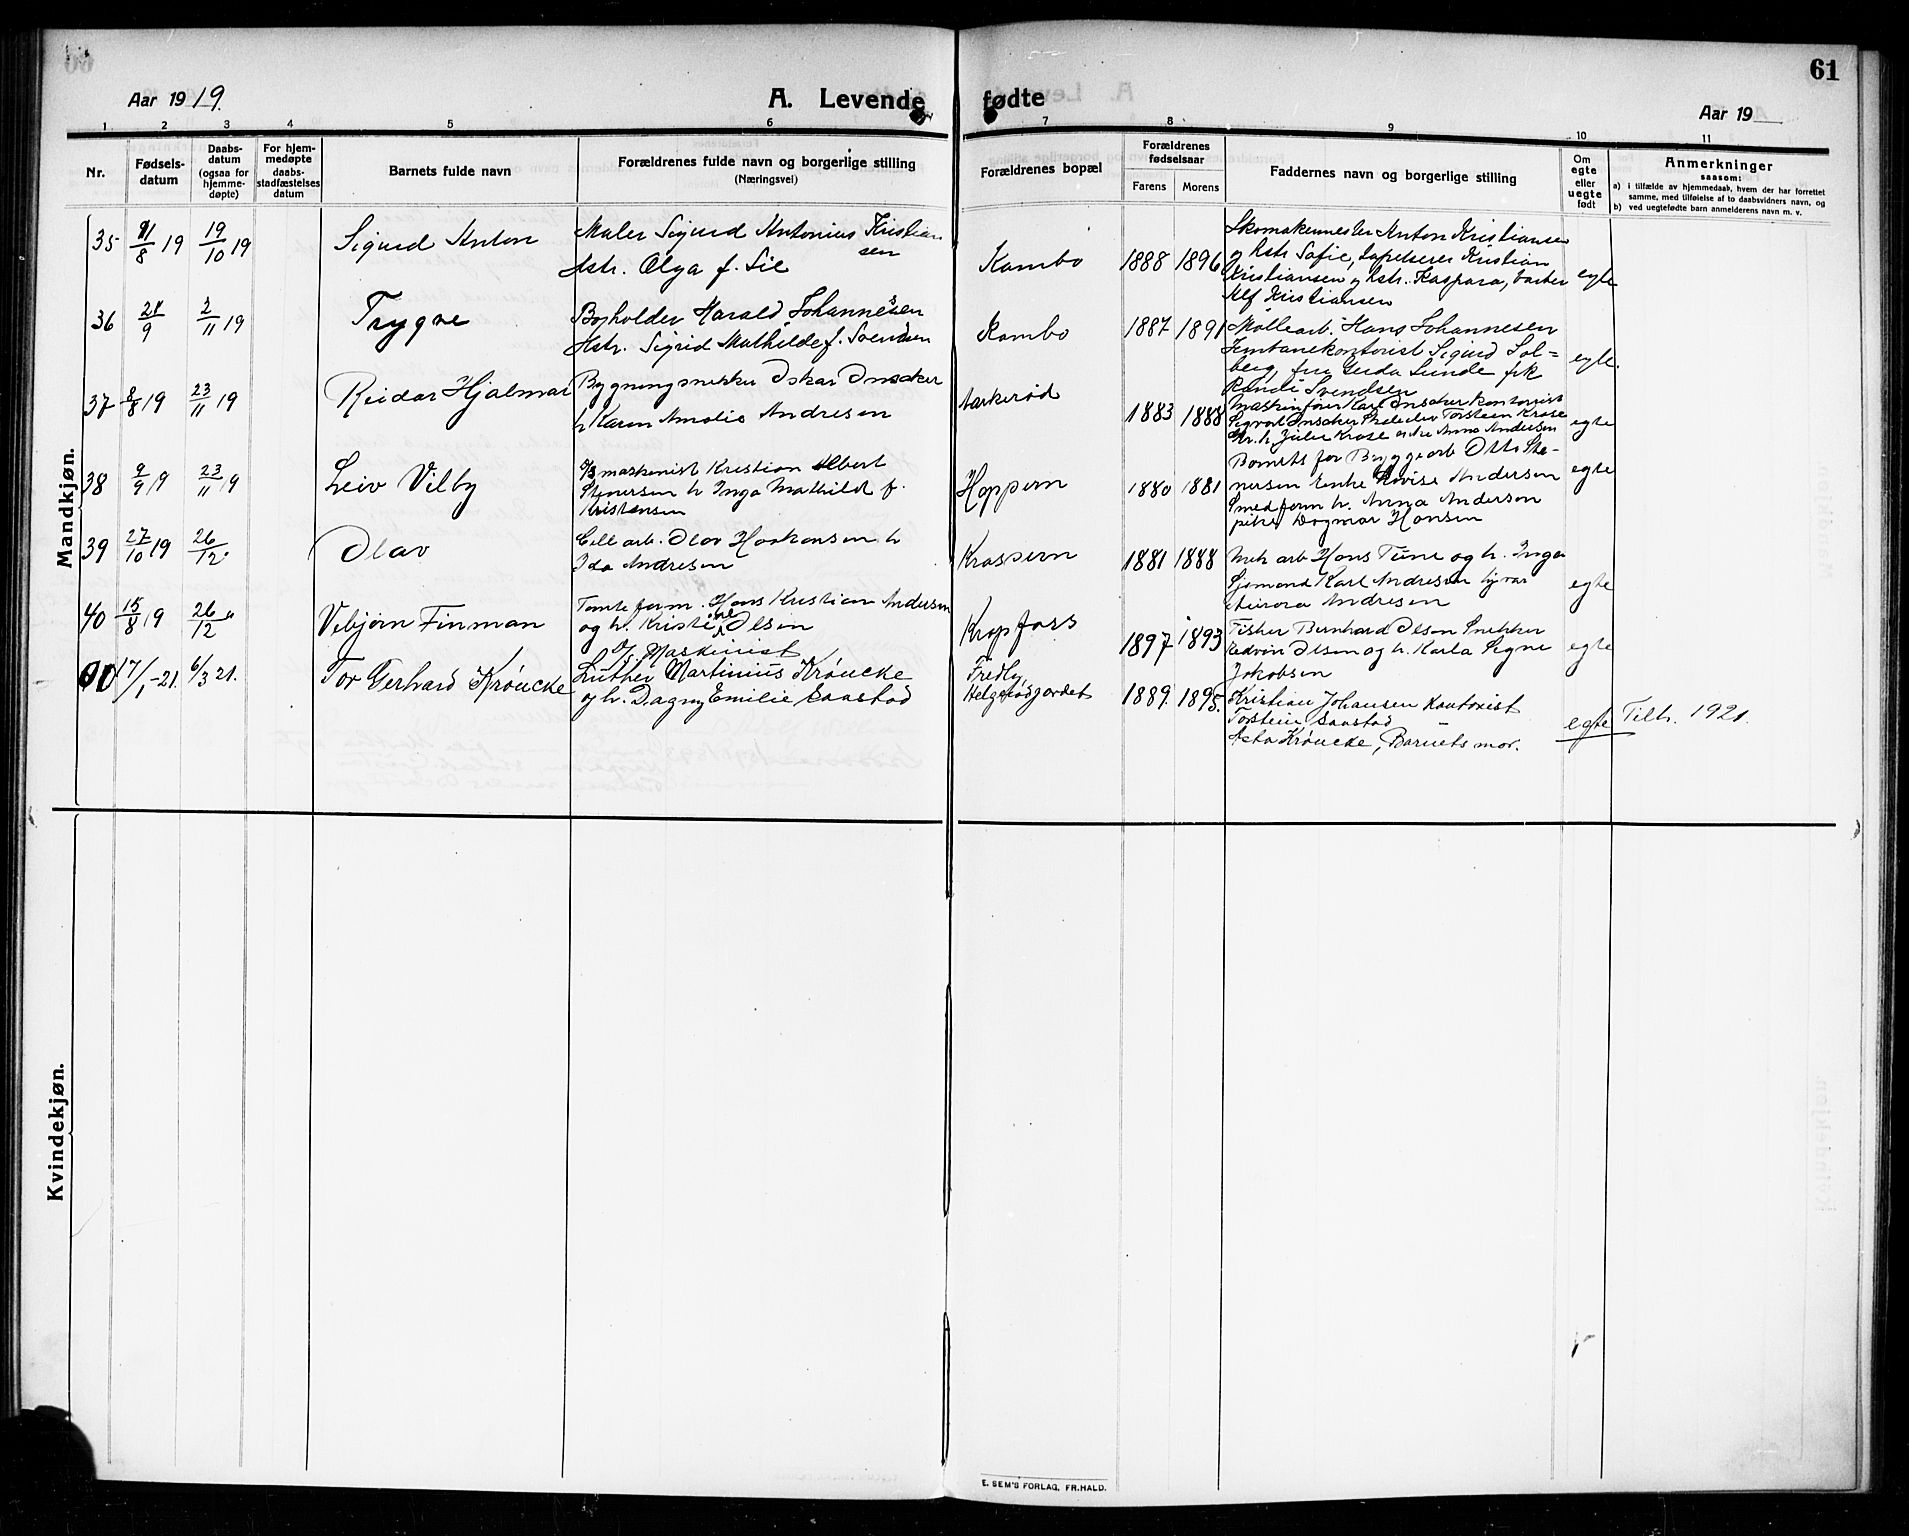 61
Aar 1919.
A. Levende fødte
Aar 19
1 2 3 4 5 6 7 8 9 10 11
Nr.
Fødsels-
datum
Daabs-
datum
(ogsaa for
hjemme-
døpte)
For hjem-
medøpte
daabs-
stadfæstelses
datum
Barnets fulde navn
Forældrenes fulde navn og borgerlige stilling
(Næringsvei)
Forældrenes bopæl
Forældrenes
fødselsaar
Farens Morens
Faddernes navn og borgerlige stilling
Om
egte
eller
uegte
født
Anmerkninger
saasom:
a) i tilfælde av hjemmedaab, hvem der har forrettet
samme, med tilføielse af to daabsvidners navn, og
b) ved uegtefødte barn anmelderens navn m. v.
Mandkjøn.
35 11/8 19 19/10 19 Sigurd Anton
Maler Sigurd Antonius Kristian
sen
Hstr. Olga f. Lie
Kambo 1888 1896
Skomakermester Anton Kristiansen
og Hstr Sofie, Tapetserer Kristian
Kristiansen og Hstr. Kaspara, barber
Alf Kristiansen
egte
36 21/9 2/11 19 Trygve
Bokholder Harald Johannessen
Hstr. Sigrid Mathilde f. Svendsen
Kambo 1887 1891
Møllearb. Hans Johannesen
Jernbanekontorist Sigurd Sol=
berg, fru Gerda Sunde frk
Randi Svendsen
egte.
37 8/8 19 23/11 19 Reidar Hjalmar
Bygningsnekker Oskar Onsaker
h Karen Amalie Andresen
Aarkerød 1883 1888
Maskinfører Karl Onsaker kontorist
Sigvart Onsaker Torstein Krose
Gr. h. Julie Krose Anna Andersen
egte
38 9/9 19 23/11 19 Leiv Vilby
maskinist Kristian Albert
Stenersen h Inga Mathild f.
Kristensen
Hoppern 1880 1881
Barnets far Byggearb Otto Ste-
nersen Enke Lovise Andersen
Smedform h. Anna Anderson
pike Dagmar Hansen
egte
39 27/10 19 26/12 Olav
Cell arb. Olav Haakonsen h
Ida Andresen
Krossern 1881 1888
Mek arb Hans Tune og h. Inga
Sjømand Karl Andresen
Aurora Andresen
egte
40 15/8 19 26/12 Vebjørn Finman
Tomteform. Hans Kristian Andersen
og h. Kristine Olsen
Kropfoss 1897 1893
Fisker Bernhard Olsen Snekker
Edvin Olsen og h. Karla Signe
Jakobsen
egte
17/1-21. 6/3 21. Tor Gerhard Krøncke
Maskinist
Luther Martinius Krøncke
og h. Dagny Emilie Saastad
Fredly,
Helgerødgjordet 1889. 1895.
Kristian Johansen Kontorist
Torstein Saastad
Asta Krøncke, Barnets mor.
egte Tilh. 1921.
Kvindekjøn.
E. SEM'S FORLAG, FR.HALD.